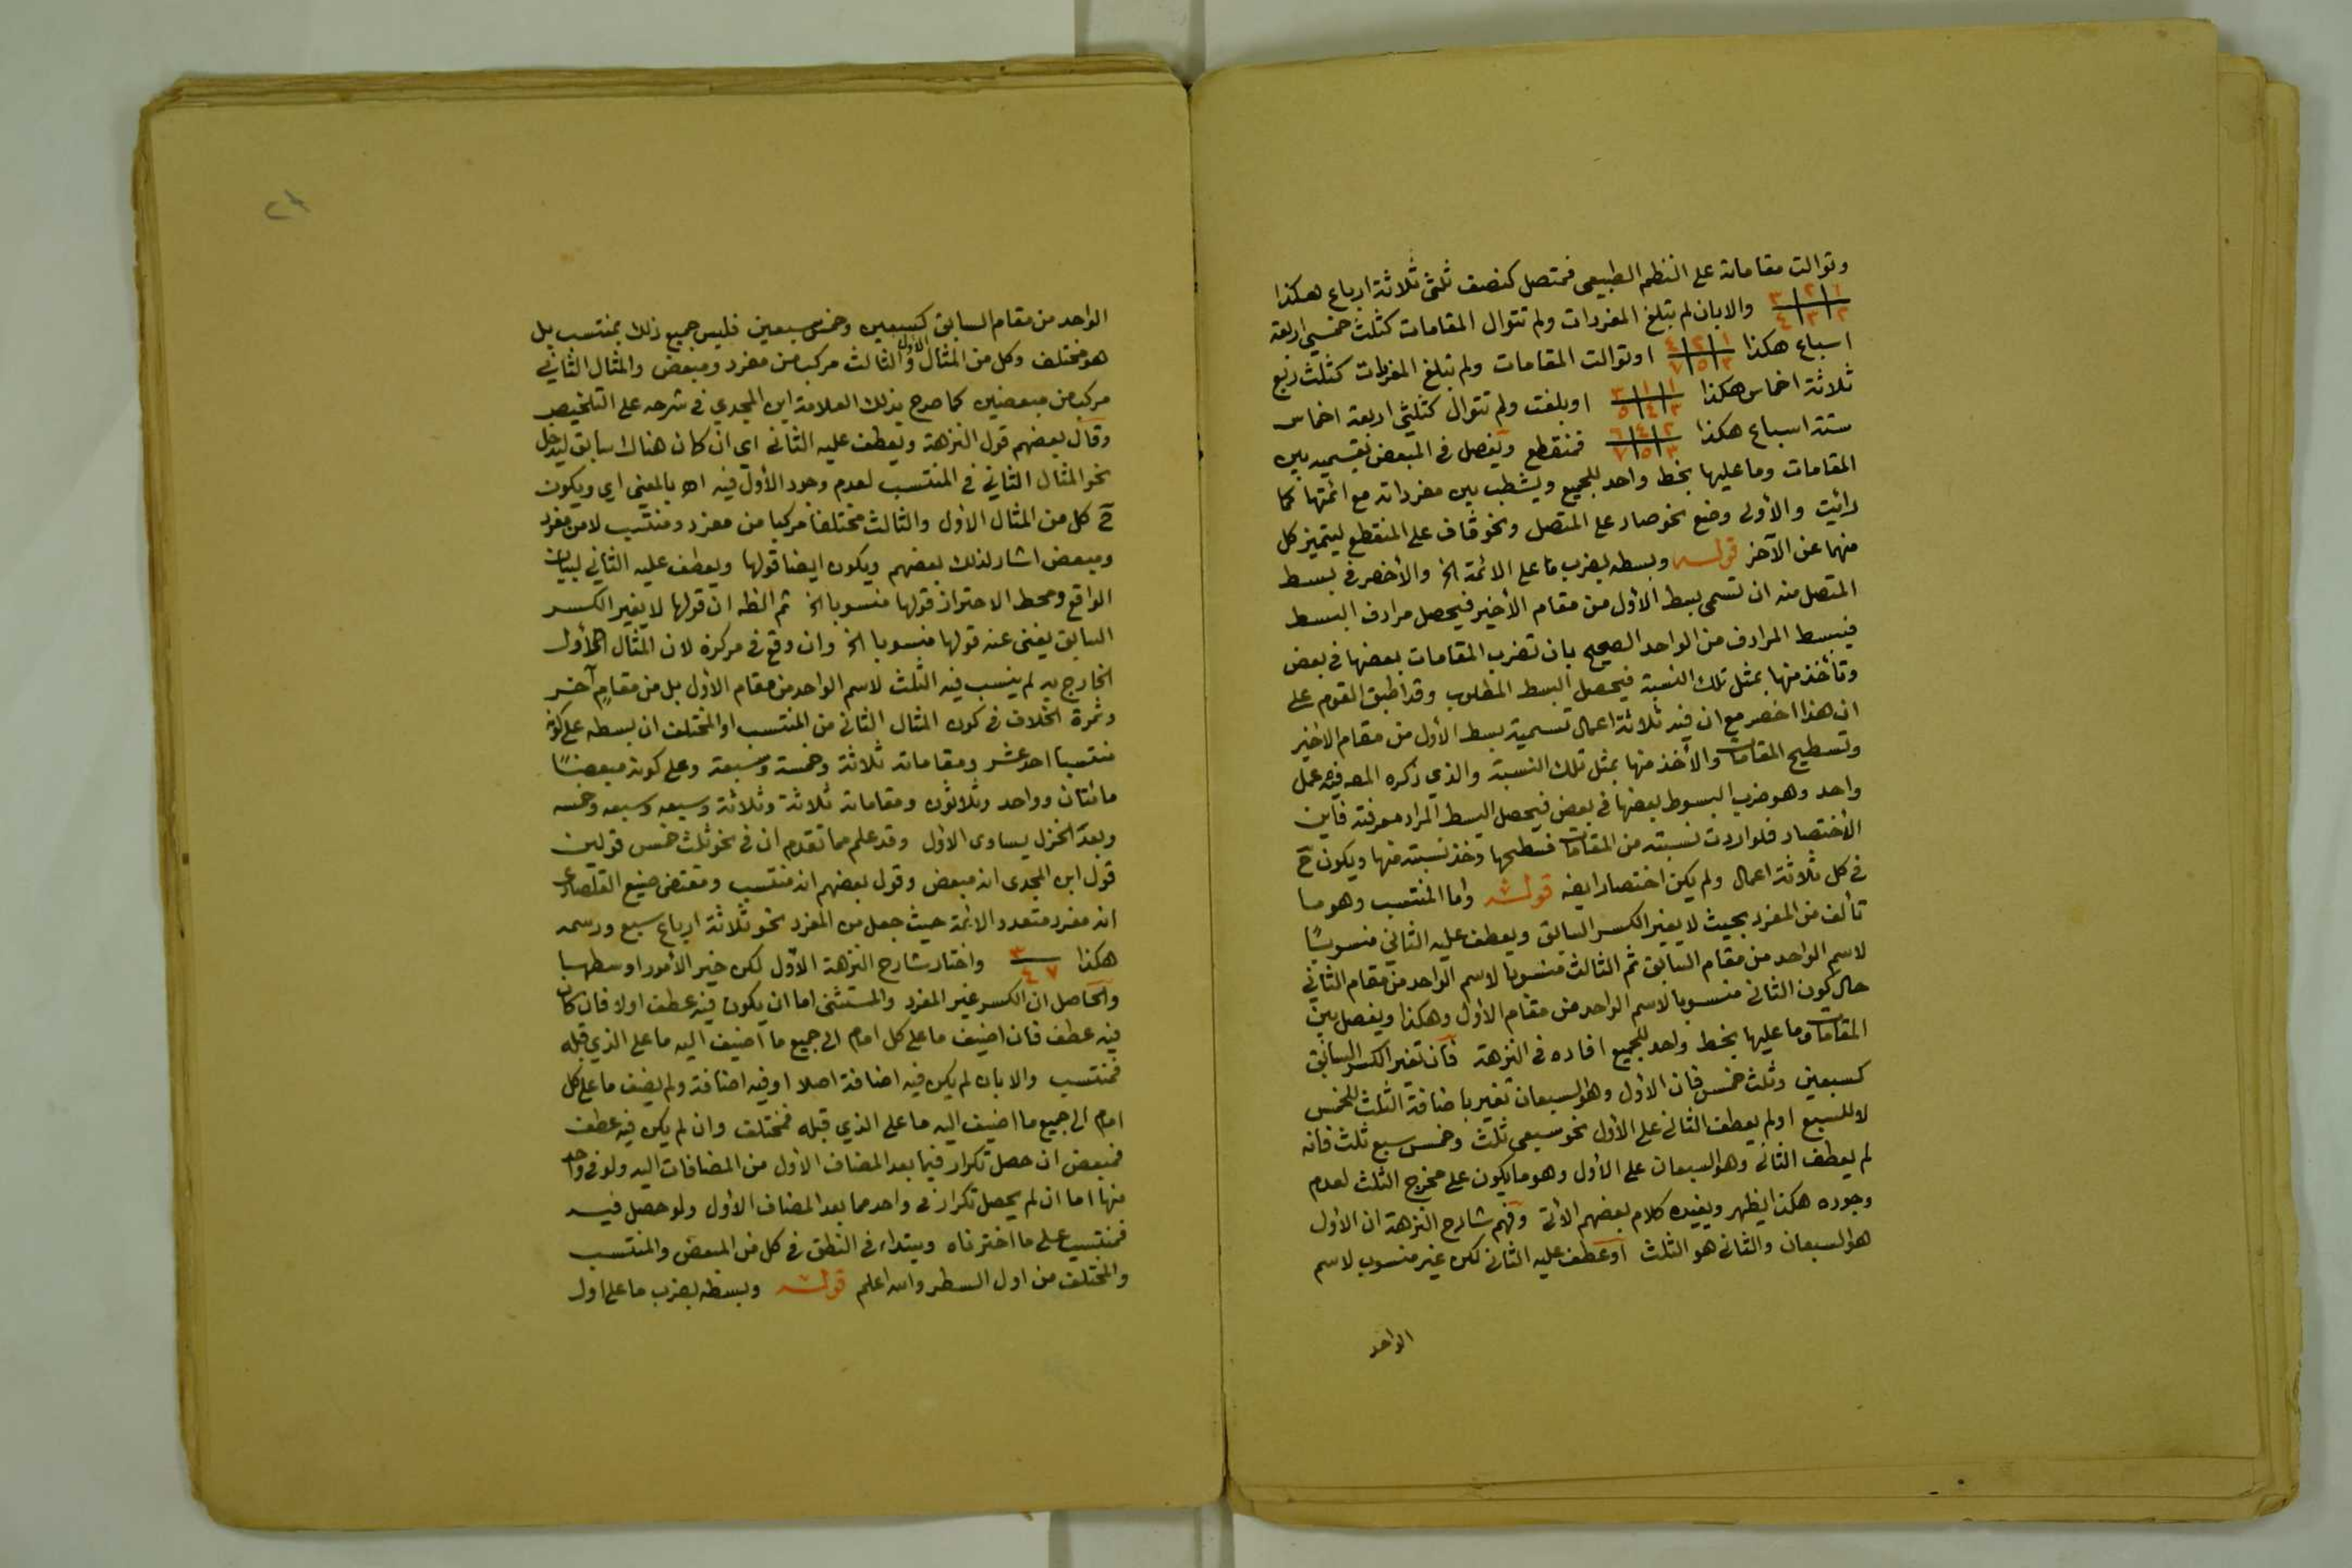 وتوالت مقاماته على النظم الطبيعي فمتصل كنصف ثلثى ثلاثة ارباع هكذا
١ ٢ ٣ والا بان لم تبلغ المفردات ولم تتوال المقامات كثلث خمسي اربعة
٢ ٣ ٤
اسباع هكذا ١ ٢ ٤ او توالت المقامات ولم تبلغ المفردات كثلث ربع
٣ ٥ ٧
ثلاثة اخماس هكذا ١ ١ ٣ او بلغت ولم تتوال كثلثي اربعة اخماس
٣ ٤ ٥
ستة اسباع هكذا ٢ ٤ ٦ فمنقطع ويفصل في المبعض بقسميه بين
٣ ٥ ٧
المقامات وما عليها بخط واحد للجميع ويشطب بين مفرداته مع ائمتها كما
رائيت والأولى وضع نحو صاد على المتصل ونحو قاف على المنقطع ليتميز كل
منها عن الآخر قوله وبسطه بضرب ما على الائمة الخ والأخصر في بسط
المتصل منه ان تسمى بسط الأول من مقام الأخير فيحصل مرادف البسط
فيبسط المرادف من الواحد الصحيح بان تضرب المقامات بعضها في بعض
وتأخذ منها بمثل تلك النسبة فيحصل البسط المطلوب وقد اطبق القوم على
ان هذا اخصر مع ان فيه ثلاثة اعمال تسمية بسط الأول من مقام الاخير
وتسطيح المقامات والأخذ منها بمثل تلك النسبة والذي ذكره المص فيه عمل
واحد وهو ضرب البسوط بعضها في بعض فيحصل البسط المراد معرفته فاين
الأختصار فلو اردت نسبته من المقامات فسطحها وخذ نسبته منها ويكون ح
في كل ثلاثة اعمال ولم يكن اختصار ايضه قوله واما المنتسب وهو ما
تألف من المفرد بحيث لا يغير الكسر السابق ويعطف عليه الثاني منسوبًا
لاسم الواحد من مقام السابق ثم الثالث منسوبا لاسم الواحد من مقام الثاني
حال كون الثانى منسوبا لاسم الواحد من مقام الأول وهكذا ويفصل بين
المقامات وما عليها بخط واحد للجميع افاده في النزهة فان تغير الكسر السابق
كسبعين وثلث خمس فان الأول وهو السبعان تغير باضافة الثلث للخمس
لا للسبع او لم يعطف الثاني على الأول نحو سبعى ثلث وخمس سبع ثلث فانه
لم يعطف الثانى وهو السبعان على الأول وهو ما يكون على مخرج الثلث لعدم
وجوده هكذا يظهر ويفيده كلام بعضهم الاتى وفهم شارح النزهة ان الأول
هو السبعان والثانى هو الثلث او عطف عليه الثانى لكن غير منسوب لاسم
الواحد
الواحد من مقام السابق كسبعين وخمس سبعين فليس جميع ذلك بمنتسب بل
هو مختلف وكل من المثال الاول والثالث مركب من مفرد ومبعض والمثال الثاني
مركب من مبعضين كما صرح بذلك العلامة ابن المجدي في شرحه على التلخيص
وقال بعضهم قول النزهة ويعطف عليه الثانى اي ان كان هناك سابق ليدخل
نحو المثال الثاني في المنتسب لعدم وجود الأول فيه اه بالمعنى اي ويكون
ح كل من المثال الأول والثالث مختلفا مركبا من مفرد ومنتسب لا من مفرد
ومبعض اشار لذلك بعضهم ويكون ايضا قولها ويعطف عليه الثاني لبيان
الواقع ومحط الاحتراز قولها منسوبا الخ ثم الظه ان قولها لا يغير الكسر
السابق يغنى عنه قولها منسوبا الخ وان وقع في مركزه لان المثال الأول
الخارج به لم ينسب فيه الثلث لاسم الواحد من مقام الأول بل من مقامٍ آخر
وثمرة الخلاف في كون المثال الثانى من المنتسب او المختلف ان بسطه على كونه
منتسبا احد عشر ومقاماته ثلاثة وخمسة وسبعة وعلى كونه مبعضًا
مائتان وواحد وثلاثون ومقاماته ثلاثة وثلاثة وسبعه وسبعه وخمسه
وبعد الخزل يساوى الاول وقد علم مما تقدم ان في نحو ثلث خمس قولين
قول ابن المجدى انه مبعض وقول بعضهم انه منتسب ومقتضى صنيع القلصادى
انه مفرد متعدد الائمة حيث جعل من المفرد نحو ثلاثة ارباع سبع ورسمه
هكذا ٣ واختار شارح النزهة الأول لكن خير الأمور اوسطهبا
٧ ٤
والحاصل ان الكسر غير المفرد والمستثنى اما ان يكون فيه عطف اولا فان كان
فيه عطف فان اضيف ما على كل امام الى جميع ما اضيف اليه ما على الذي قبله
فمنتسب والا بان لم يكن فيه اضافة اصلا او فيه اضافة ولم يضف ما على كل
امام الى جميع ما اضيف اليه ما على الذي قبله فمختلف وان لم يكن فيه عطف
فمبعض ان حصل تكرار فيما بعد المضاف الأول من المضافات اليه ولو في واحد
منها اما ان لم يحصل تكرار في واحد مما بعد المضاف الأول ولو حصل فيه
فمنتسب على ما اخترناه ويبتداء في النطق في كل من المبعض والمنتسب
والمختلف من اول السطر والله اعلم قوله وبسطه بضرب ما على اول